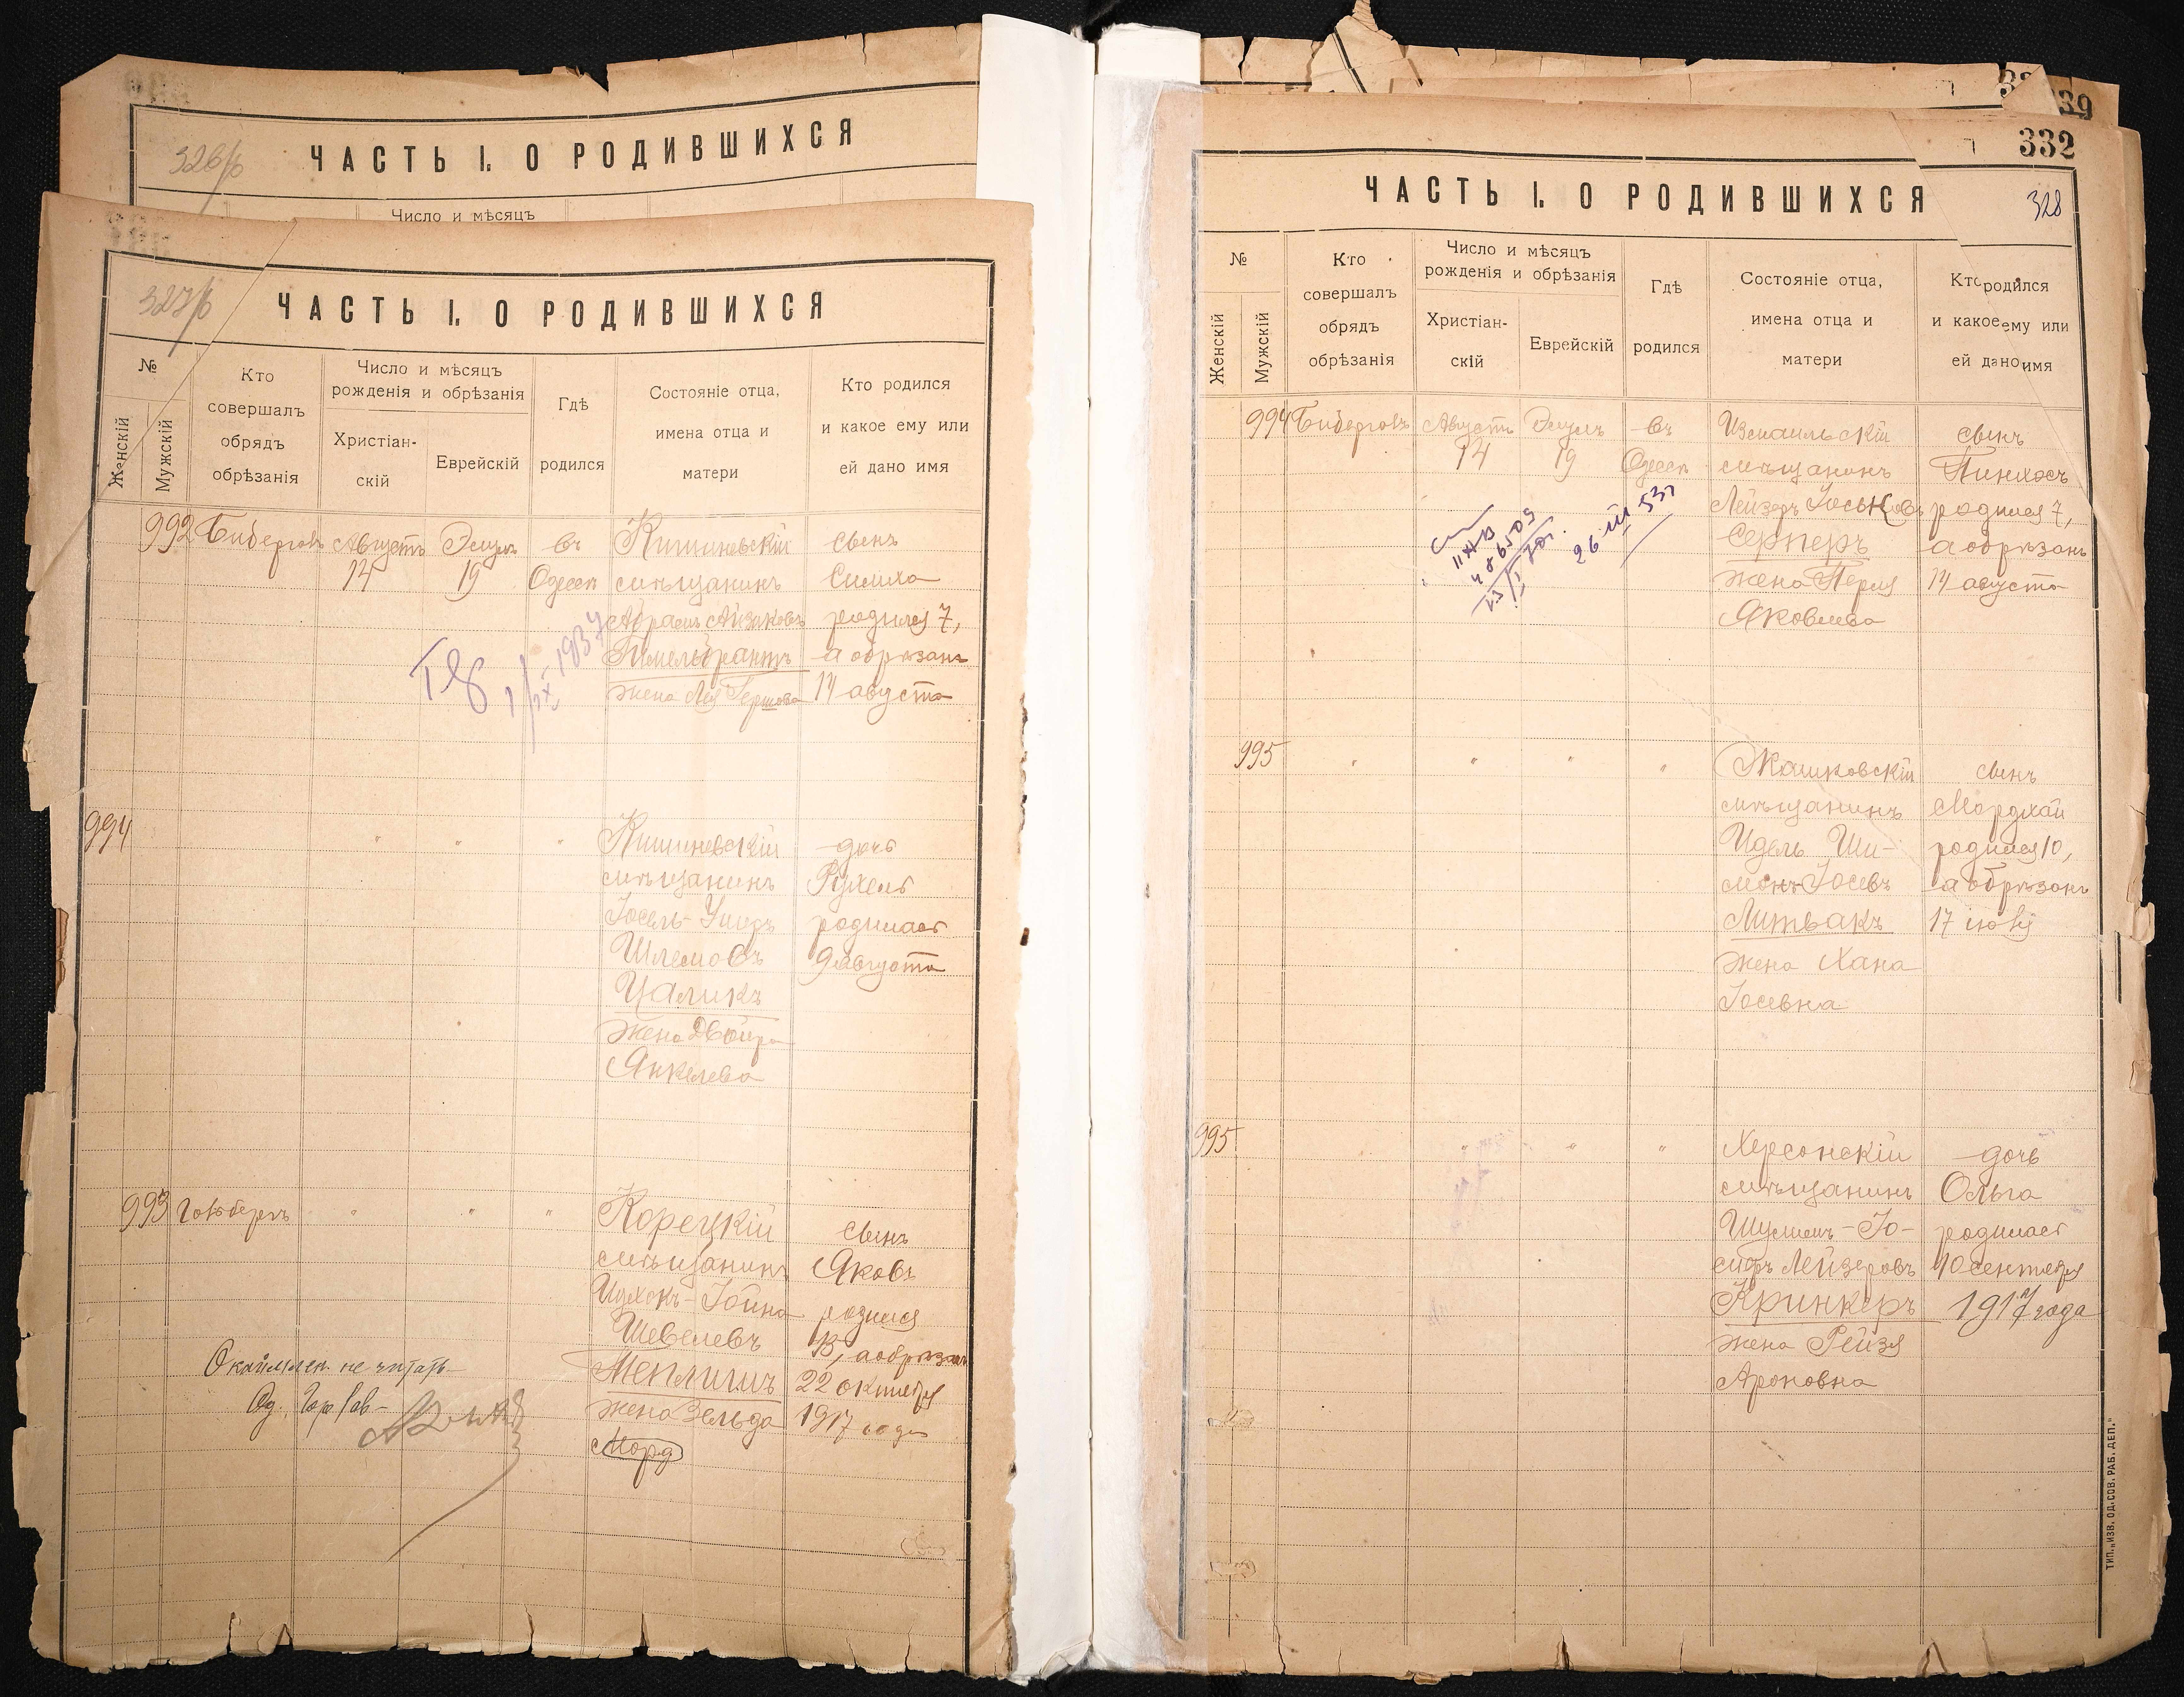 326/б
ЧАСТЬ I. О РОДИВШИХСЯ
Число и мѣсяцъ
327/б
ЧАСТЬ I. О РОДИВШИХСЯ
№
Женскій
Мужскій
Кто
совершалъ
обрядъ
обрѣзанія
Число и мѣсяцъ
рожденія и обрѣзанія
Христіан-
скій
Еврейскій
Гдѣ
родился
Состояніе отца,
имена отца и
матери
Кто родился
и какое ему или
ей дано имя
992
Августъ
14
19
въ
Одессѣ
Кишиневскій
мѣщанинъ
Абрамъ Айзиковъ
жена Лея Гершова
сынъ
Симха
родился 7,
а обрѣзанъ
14 августа
1937
994
"
"
"
Кишиневскій
мѣщанинъ
Іосель-
Шлемовъ
Цаликъ
жена Двойра
Янкелева
дочь
Рухель
родилась
9 августа
993
"
"
"
Корецкій
мѣщанинъ
Ицхокъ-Іойна
Шевелевъ
жена Зельда
Морд
сынъ
Яковъ
родился
15, а обрѣзанъ
22 октября
1917 года
не читать
332
328
ЧАСТЬ I. О РОДИВШИХСЯ
№
Женскій
Мужскій
Кто
совершалъ
обрядъ
обрѣзанія
Число и мѣсяцъ
рожденія и обрѣзанія
Христіан-
скій
Еврейскій
Гдѣ
родился
Состояніе отца,
имена отца и
матери
Кто родился
и какое ему или
ей дано имя
994
Августъ
14
19
въ
Одессѣ
Измаильскій
мѣщанинъ
Лейзеръ Іоськовъ
Серперъ
жена Перля
Яковлева
сынъ
Пинхосъ
родился 7,
а обрѣзанъ
14 августа
26 III 53г
995
"
"
"
"
Жашковскій
мѣщанинъ
Идель Ши-
монъ Іосевъ
Литвакъ
жена Хана
Іосевна
сынъ
Мордхай
родился 10,
а обрѣзанъ
17 іюля
995
"
"
"
Херсонскій
мѣщанинъ
Шулимъ-Іо-
сифъ Лейзеровъ
Кринкеръ
жена Рейзя
Ароновна
дочь
Ольга
родилась
10 сентября
1917 года
ТИП. „ИЗВ. ОД. СОВ. РАБ. ДЕП."